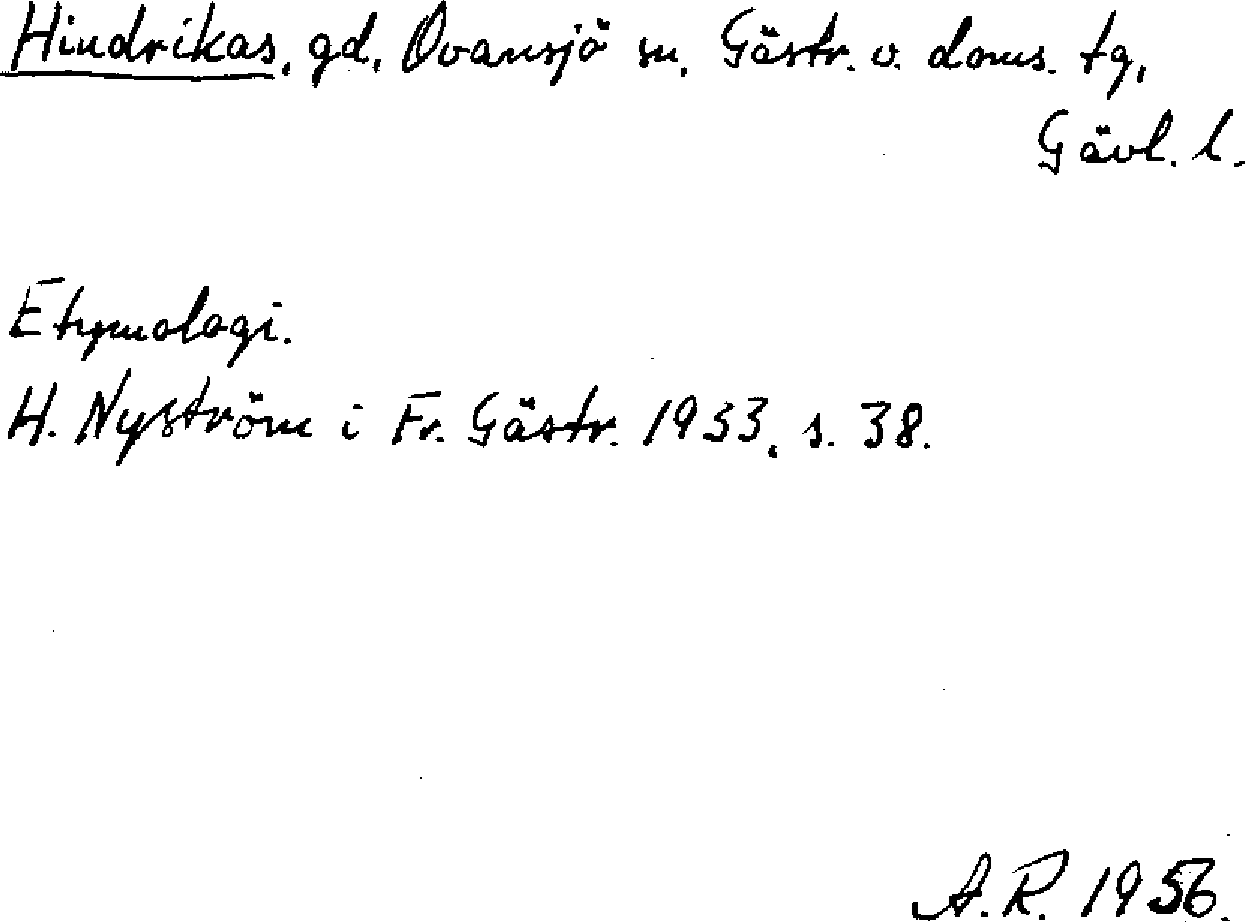 Hindrikas, gd, Ovansjö sn, Gästr. v. doms. tg,
Gävl. l.
Etymologi.
H. Nyström i Fr. Gästr. 1933, s. 38.
A.R. 1956.